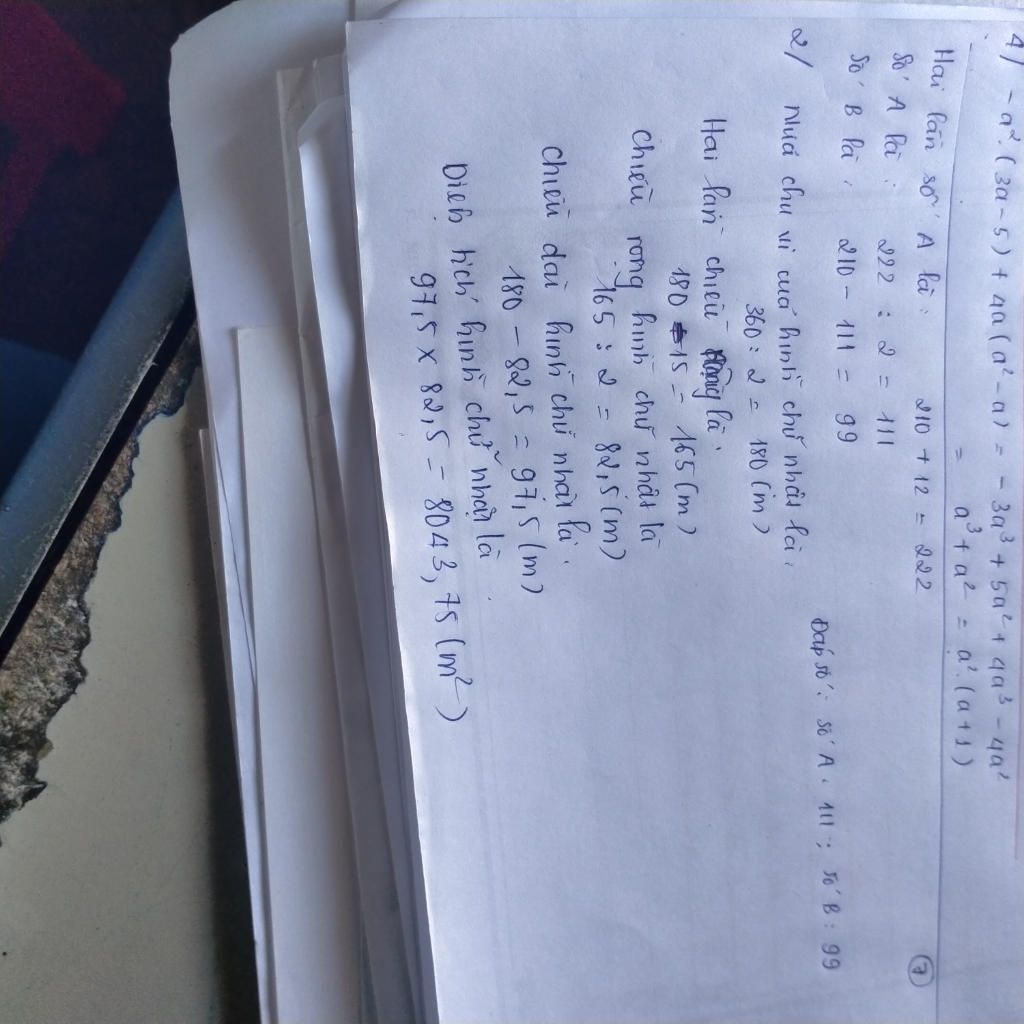 4) -a². (3a-5) + 4a(a² - a) = - 3a³ + 5a² + 4a³ - 4a²
= a³ + a² = a². (a+1)
Hai lần số A là: 210 + 12 = 222
Số A là: 222 : 2 = 111
Số B là: 210 - 111 = 99
Đáp số: số A: 111; số B: 99
7
2/ Nửa chu vi của hình chữ nhật là:
360 : 2 = 180 (m)
Hai lần chiều rộng là:
180 - 15 = 165 (m)
Chiều rộng hình chữ nhật là
165 : 2 = 82,5 (m)
Chiều dài hình chữ nhật là:
180 - 82,5 = 97,5 (m)
Diện tích hình chữ nhật là:
97,5 x 82,5 = 8043,75 (m²)